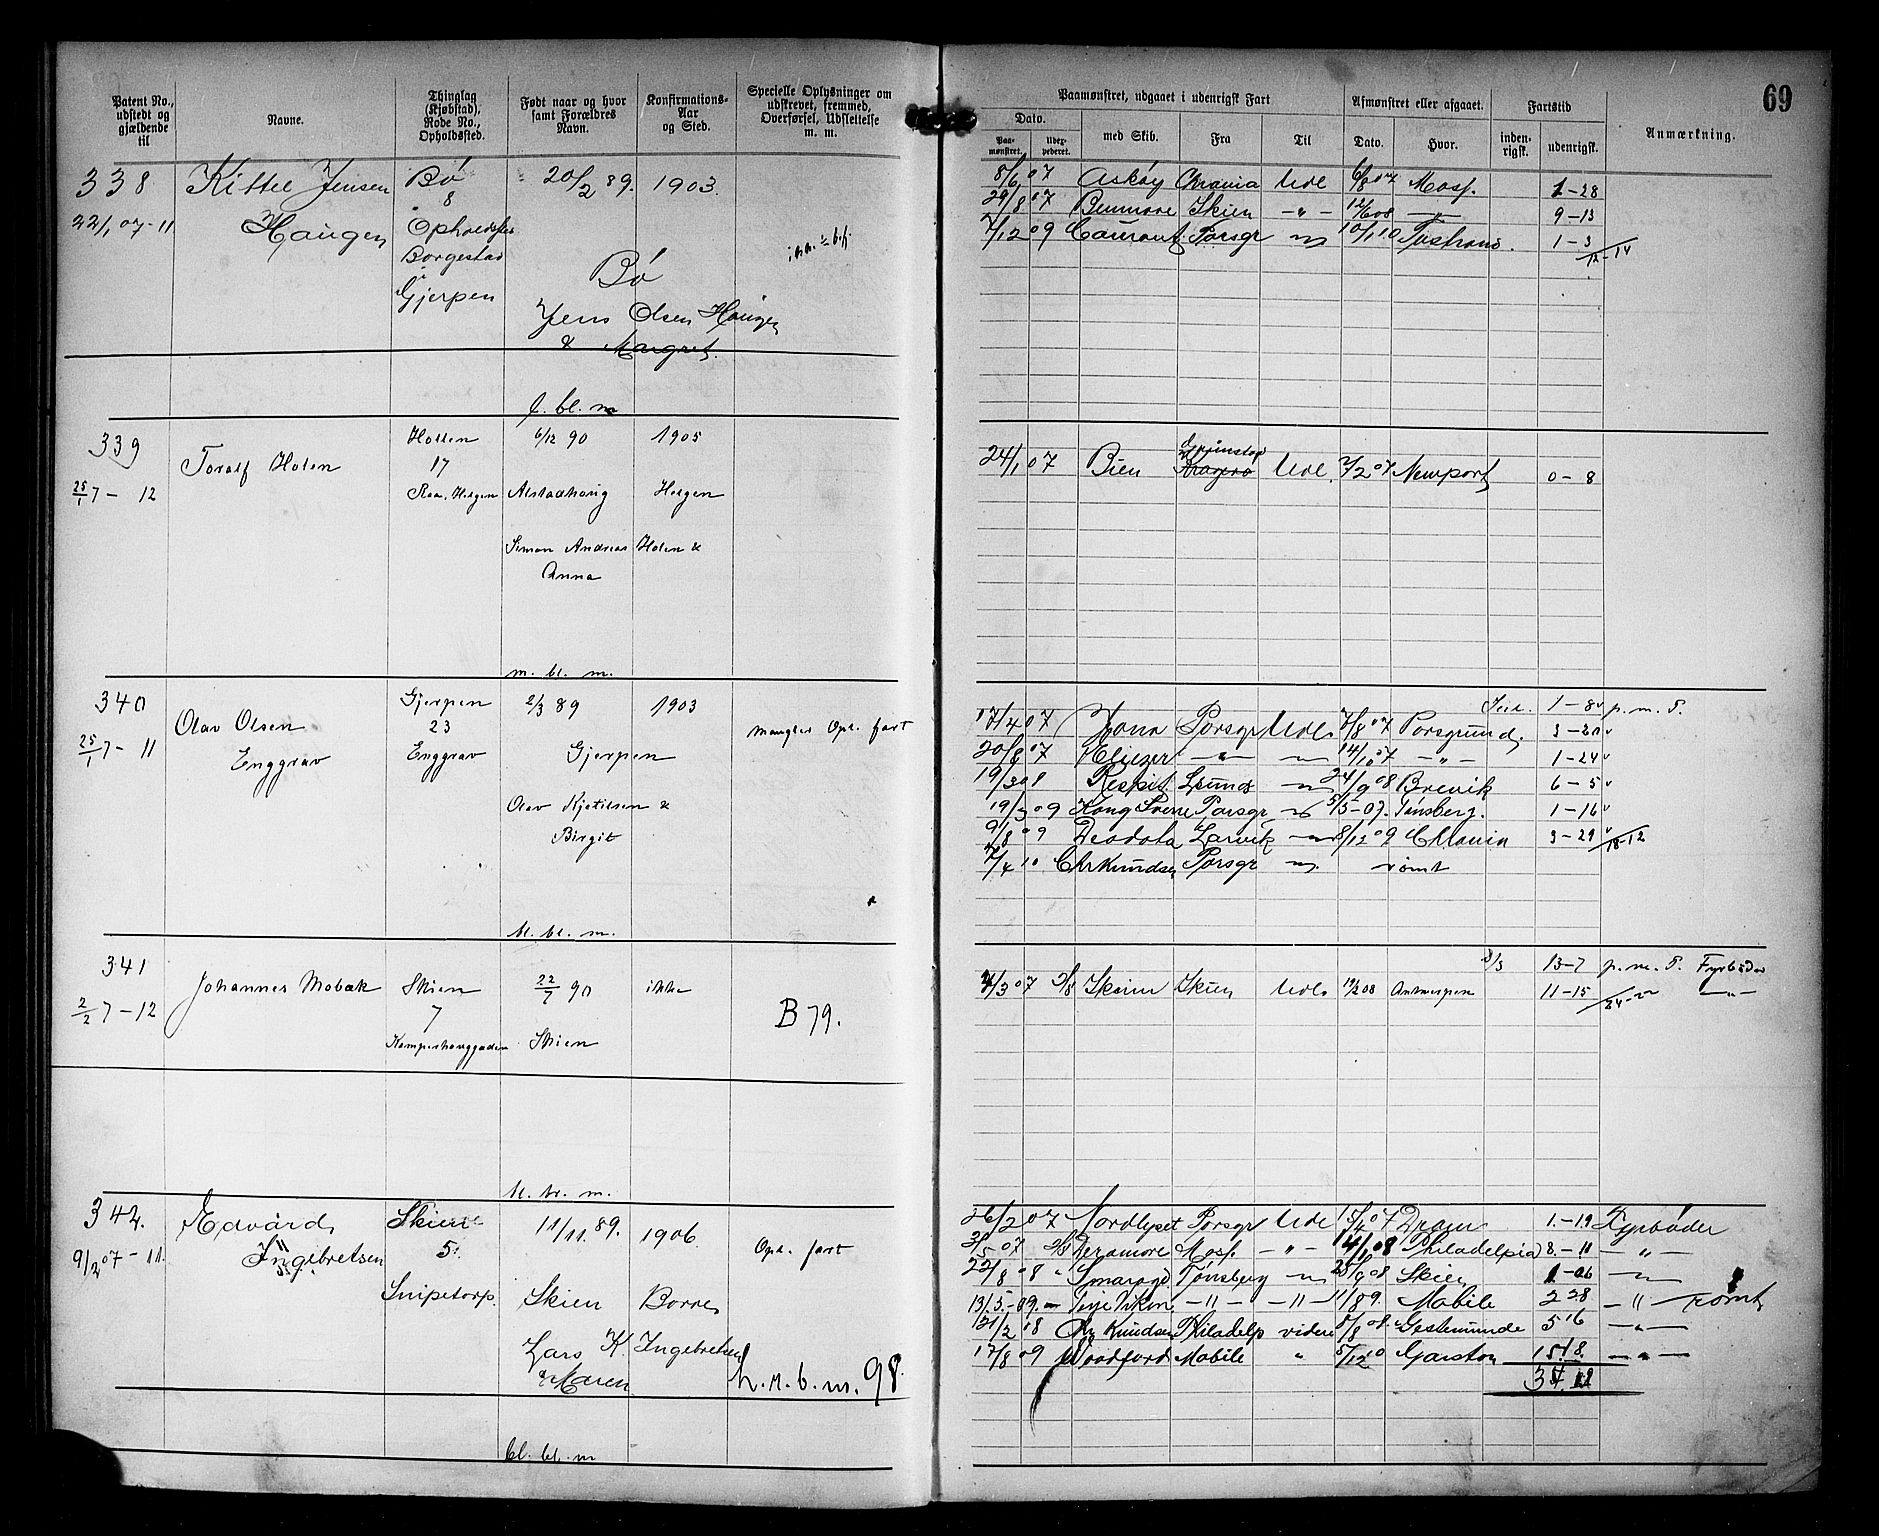 69
Patent No., udstedt og gjældende til
Navne.
Thinglag (Kjøbstad), Rode No., Opholdssted.
Født naar og hvor samt Forældres Navn.
Konfirmations-Aar og Sted.
Specielle Oplysninger om udskrevet, fremmed, Overførsel, Udslettelse m. m.
Paamønstret, udgaaet i udenrigsk Fart
Afmønstret eller afgaaet.
Fartstid
Anmærkning.
Dato.
Paa-mønstret.
Udex-pederet.
med Skib.
Fra
Til
Dato.
Hvor.
inden-rigsk.
udenrigsk.
338 Kittel Jensen Bø 20/2 89. 1903.
8
22/1 07-11 Haugen
Borgestad
i
Gjerpen
Bø
Jens Olsen Haugen
& Margret.
l. bl. m
8/6 07 Askøy Chrania Udl 6/8 07 Moss. 1-28
29/8 07 Benmore Skien -"- 12/6 08 -"- 9-13
7/12 09 Porsgr 10/1 10 1-3
12-14
339 Toralf Holen Holden 6/12 90 1905
17
25/1 7-12 Alstadhaug Helgen
Simon Andreas Holen &
Anna
m. bl. m.
24/1 07 Bien Udl. 7/2 07 Newport 0-8
340 Olav Olsen Gjerpen 2/3 89 1903
23
25/1 7-11 Enggrav Enggrav Gjerpen
mangler Oph. fart
Olav Kjetilsen &
Birgit
bl. bl. m.
1-8 p. m. T.
17/4 07 Porsgr Udl 7/8 07 Porsgrund.
20/8 07 Eliezer -"- 14/10 07 -"- 1-24
19/3 08 Respit 24/9 08 Brevik 6-5
19/3 09 Kong Sverre Porsgr Tønsberg. 1-16
9/8 09 Deodata Larvik 8/12 09 Chrania 3-29
18-12
7/4 10 Chr Knudsen Porsgr rømt
341 Johannes Mobæk Skien 22/7 90 ikke
7
2/2 7-12 Skien
B 79.
bl. br. m.
13-7 p. m. T. Fyrbøder
Skien Udl 19/2 08 Antwerpen 11-15 -"-
342. Edvard Skien 11/11 89. 1906
5.
9/2 07-11. Ingebretsen Oph. fart
Snipetorp. Skien Borre
Lars K. Ingebretsen
& Maren
h. r. b. m. 98.
bl. bl. m
26/2 07 Nordlyset Porsgr Udl Dram 1.-19 Fyrbøder
Deramore Moss. -"- 14/1 08 Philadelpia 8.-11 -"-
22/8 08 Smaragd Tønsberg 25/9 08 Skien
13/5.-09. Terje Viken -"- -"- 11/8 09. Mobile 2 28 -"- rømt
21/2 08 Chr Knudsen Philadelp videre Gestemunde 5 16 -"-
17/8 09 Woodford Mobile " 5/12 10 Garston 15.18 -"-